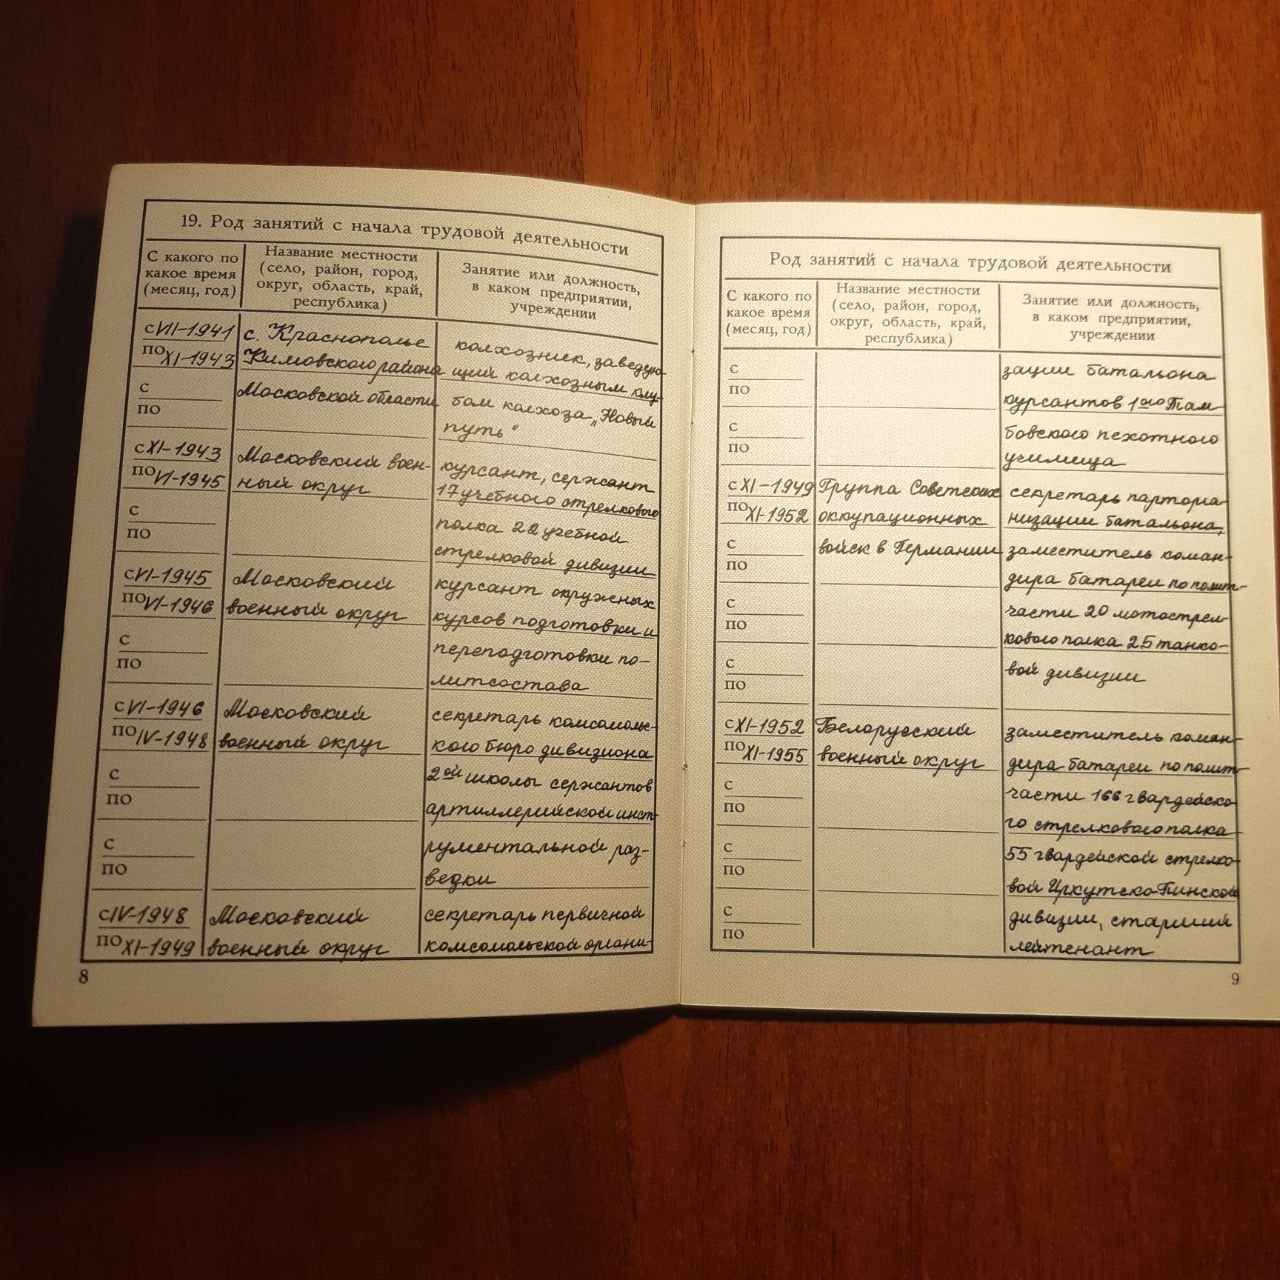 19. Род занятий с начала трудовой деятельности
С какого по
какое время
(месяц, год)
Название местности
(село, район, город,
округ, область, край,
республика)
Занятие или должность,
в каком предприятии,
учреждении
с VII-1941
по XI-1943
с. Краснополье
Кимовского района
Московской области
колхозник, заведую-
щий колхозным клу-
бом колхоза „Новый
путь"
с
по
с XI-1943
по VI-1945
Московский воен-
ный округ
курсант, сержант
17 учебного стрелкового
полка 22 учебной
стрелковой дивизии
с
по
с VI-1945
по VI-1946
Московский
военный округ
курсант окружных
курсов подготовки и
переподготовки по-
литсостава
с
по
с VI-1946
по IV-1948
Московский
военный округ
секретарь комсомоль-
ского бюро дивизиона
2ой школы сержантов
артиллерийской инст-
рументальной раз-
ведки
с
по
с
по
с IV-1948
по XI-1949
Московский
военный округ
секретарь первичной
комсомольской органи-
8
Род занятий с начала трудовой деятельности
С какого по
какое время
(месяц, год)
Название местности
(село, район, город,
округ, область, край,
республика)
Занятие или должность,
в каком предприятии,
учреждении
с
по
с
по
зации батальона
курсантов 1ого Там
бовского пехотного
училища
с XI-1949
по XI-1952
Группа Советских
оккупационных
войск в Германии
секретарь парторга-
низации батальона,
заместитель коман-
дира батареи по полит-
части 20 мотострел-
кового полка 25 танко-
вой дивизии
с
по
с
по
с
по
с XI-1952
по XI-1955
Белорусский
военный округ
заместитель коман-
дира батареи по полит-
части 166 гвардейско-
го стрелкового полка
55 гвардейской стрелко-
вой Иркутско-Пинской
дивизии, старший
лейтенант
с
по
с
по
с
по
9